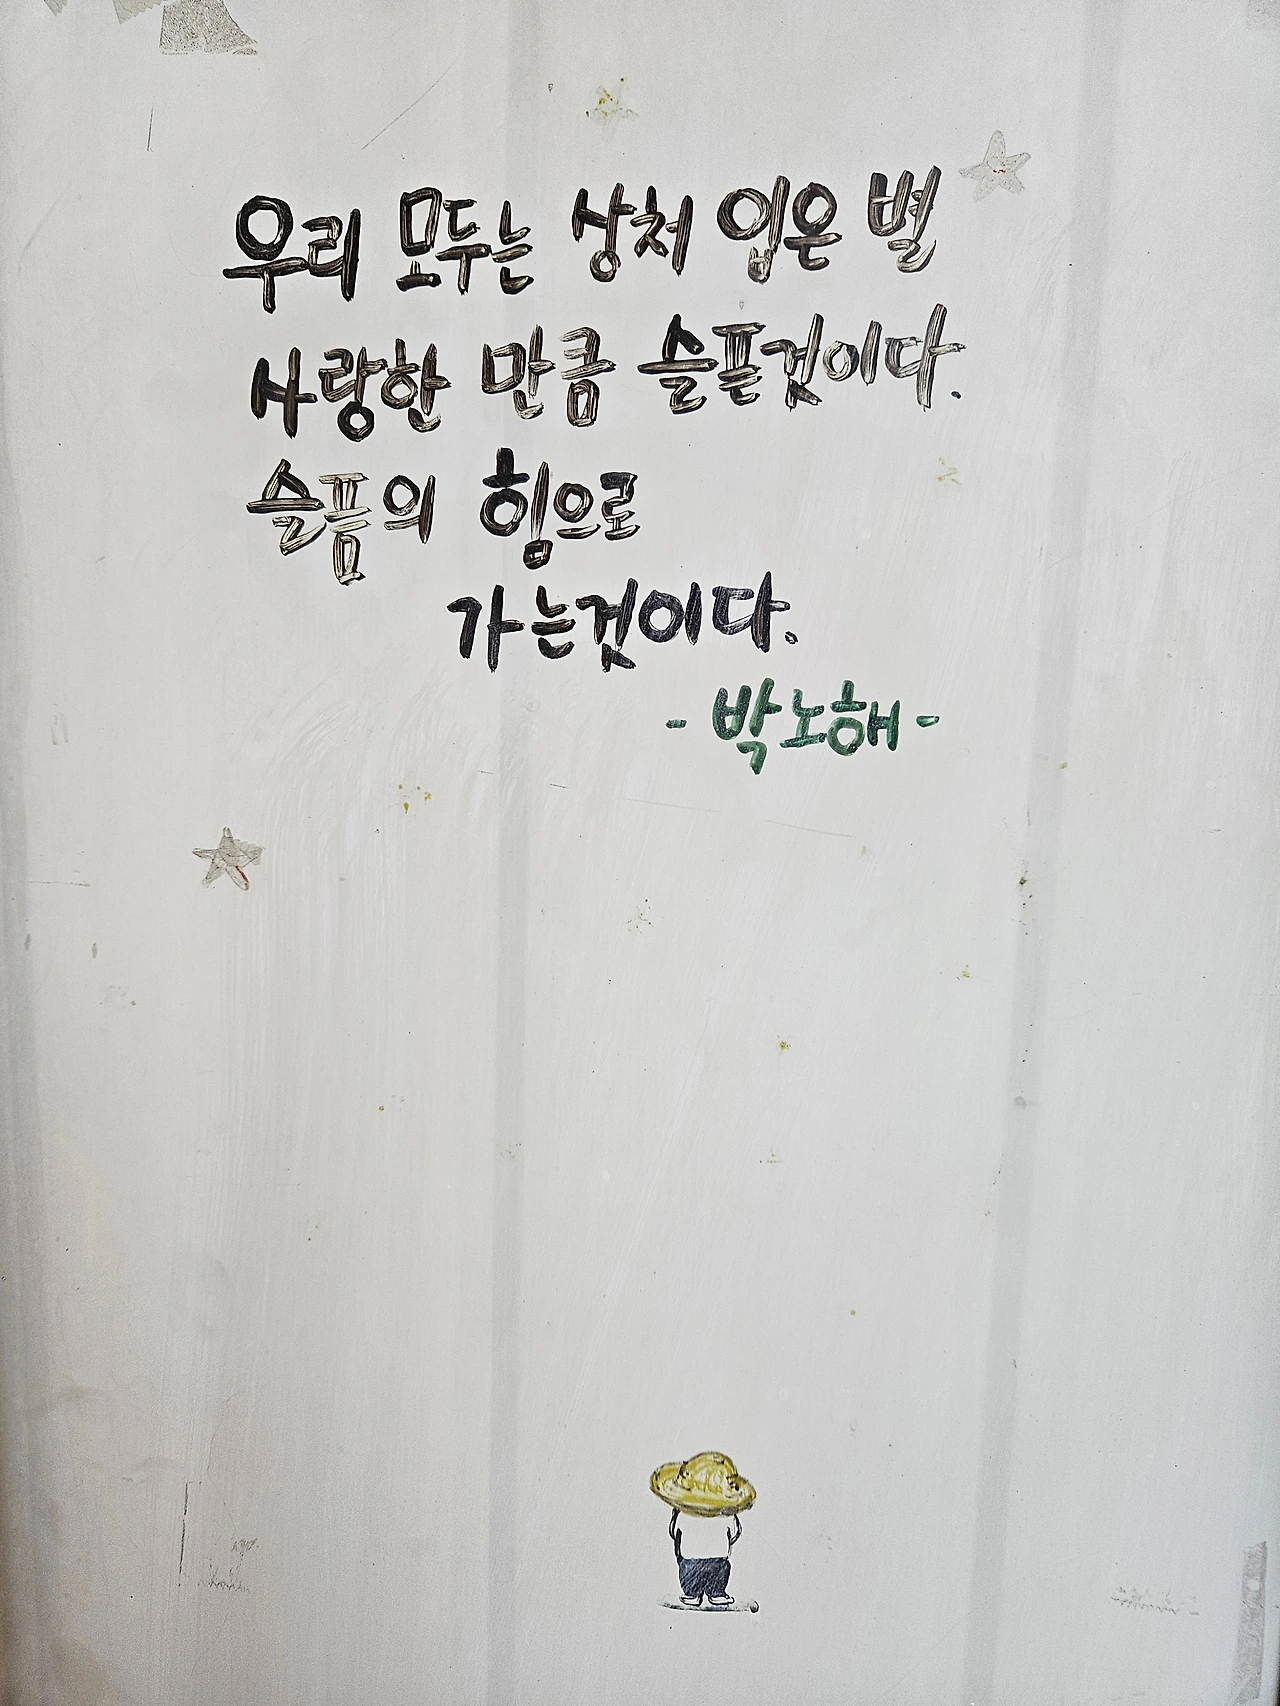 우리 모두는 상처 입은 별
사랑한 만큼 슬픈것이다.
슬픔의 힘으로
가는것이다.
- 박노해 -